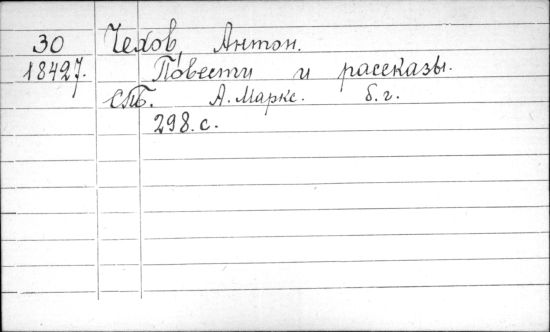 30 Чехов, Антон.
18427. Повести и рассказы.
СПБ. А. Маркс. б. г.
298. с.